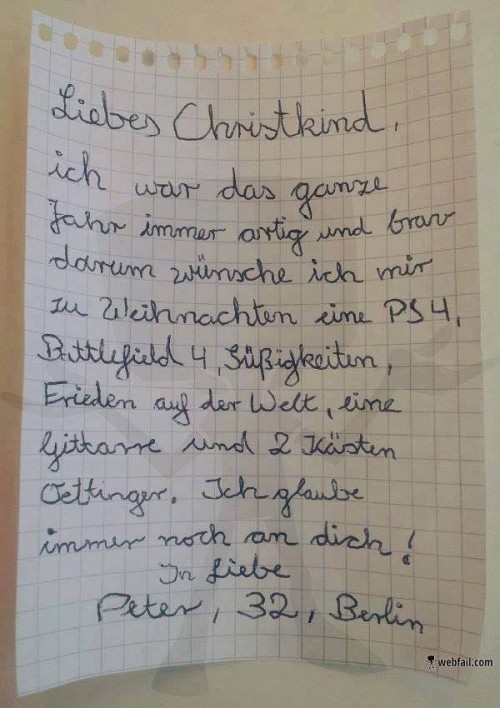 Liebes Christkind,
ich war das ganze
Jahr immer artig und brav
darum wünsche ich mir
zu Weihnachten eine PS4,
Battlefield 4, Süßigkeiten,
Frieden auf der Welt, eine
Gitarre und 2 Kästen
Oettinger. Ich glaube
immer noch an dich!
In Liebe
Peter, 32, Berlin
webfail.com